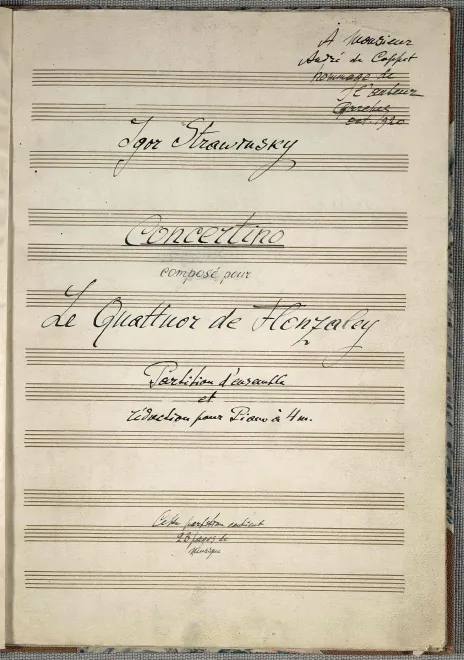 A Monsieur
André de Coppet
hommage de
l'auteur
Igor Strawinsky
Concertino
composé pour
Le Quattuor de Flonzaley
Partition d'ensemble
et
réduction pour Piano à 4 m.
Cette partition contient
pages de
Musique